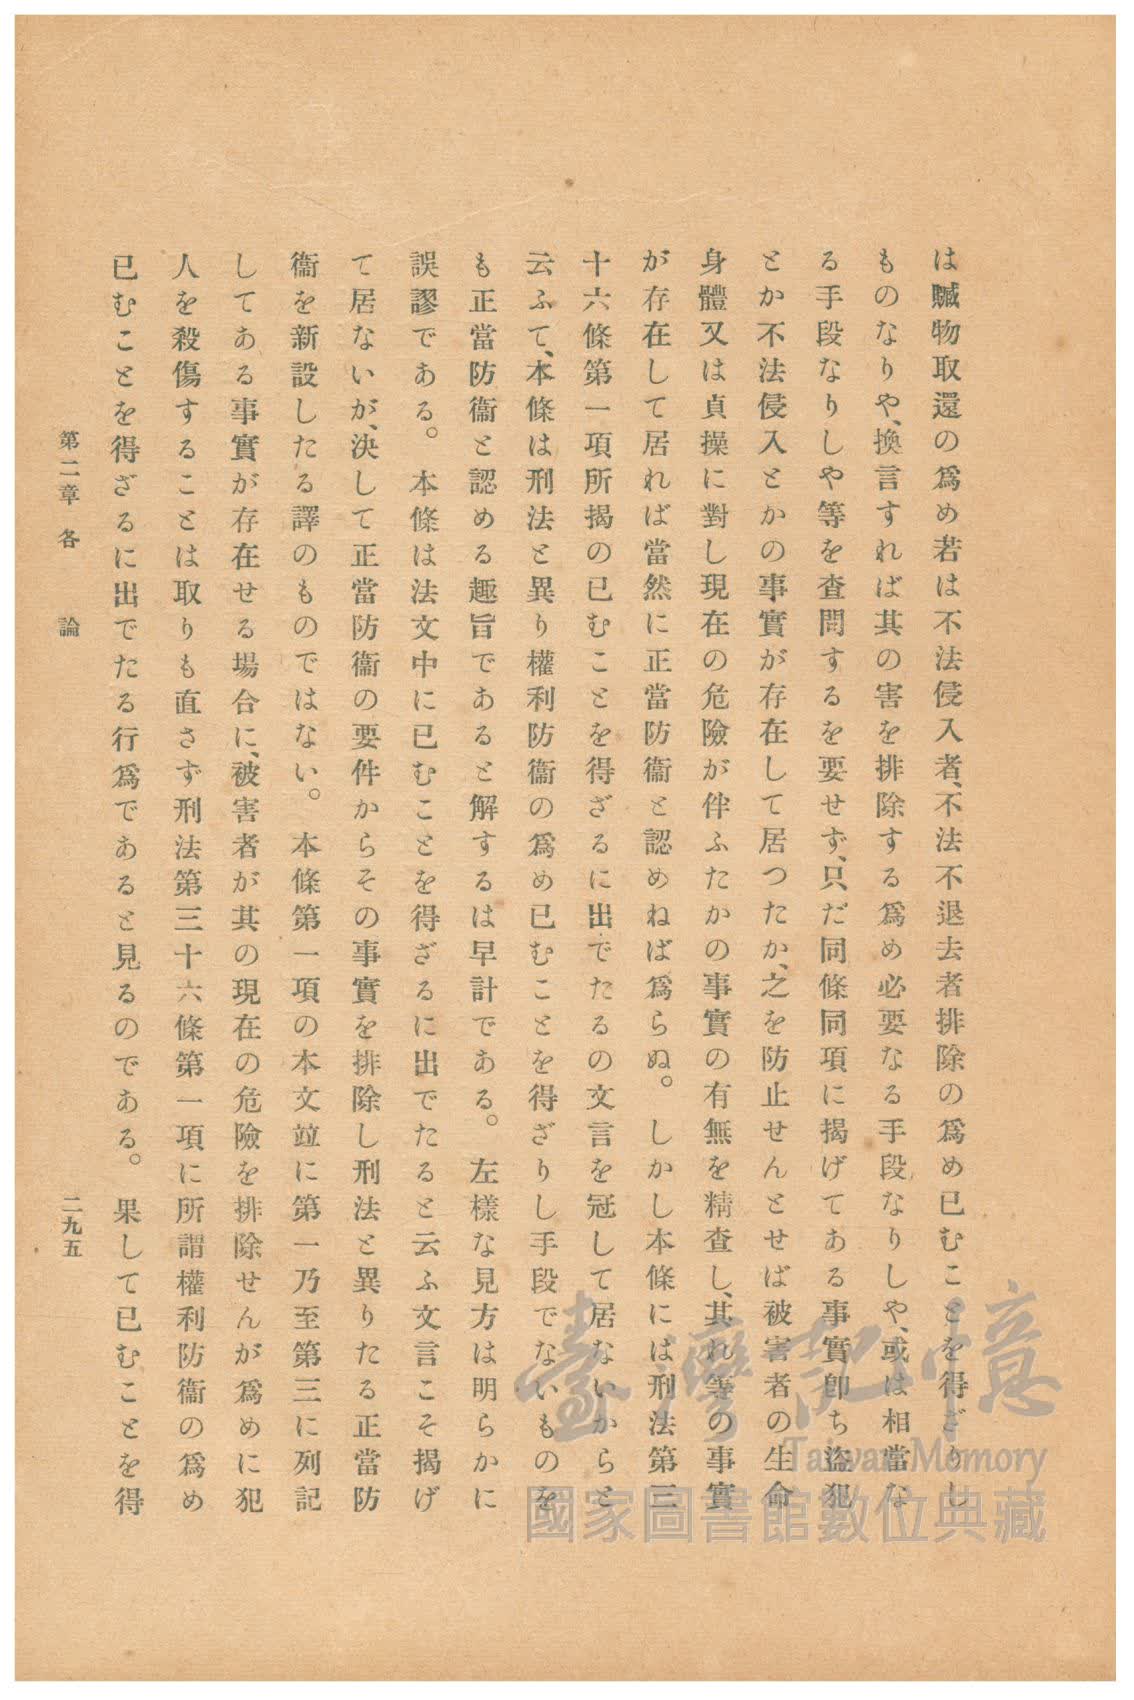 は贓物取還の爲め若は不法侵入者、不法不退去者排除の爲め已むことを得ざりし
ものなりや、換言すれば其の害を排除する爲め必要なる手段なりしや、或は相當な
る手段なりしや等を査問するを要せず、只だ同條同項に揭げてある事實卽ち盜犯
とか不法侵入とかの事實が存在して居つたか、之を防止せんとせば被害者の生命
身體又は貞操に對し現在の危險が伴ふたかの事實の有無を精査し、其れ等の事實
が存在して居れば當然に正當防衞と認めねば爲らぬ。しかし本條には刑法第三
十六條第一項所揭の已むことを得ざるに出でたるの文言を冠して居ないからと
云ふて、本條は刑法と異り權利防衞の爲め已むことを得ざりし手段でないものを
も正當防衞と認める趣旨であると解するは早計である。左樣な見方は明らかに
誤謬である。本條は法文中に已むことを得ざるに出でたると云ふ文言こそ揭げ
て居ないが、決して正當防衞の要件からその事實を排除し刑法と異りたる正當防
衞を新設したる譯のものではない。本條第一項の本文竝に第一乃至第三に列記
してある事實が存在せる場合に、被害者が其の現在の危險を排除せんが爲めに犯
人を殺傷することは取りも直さず刑法第三十六條第一項に所謂權利防衞の爲め
已むことを得ざるに出でたる行爲であると見るのである。果して已むことを得
第二章 各 論
二九五
臺灣記憶
Taiwan Memory
國家圖書館數位典藏